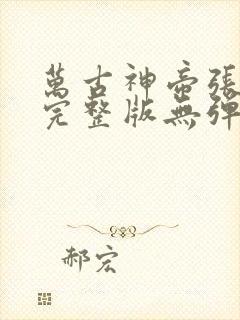 萬古神帝張
完整版無彈
郝宏